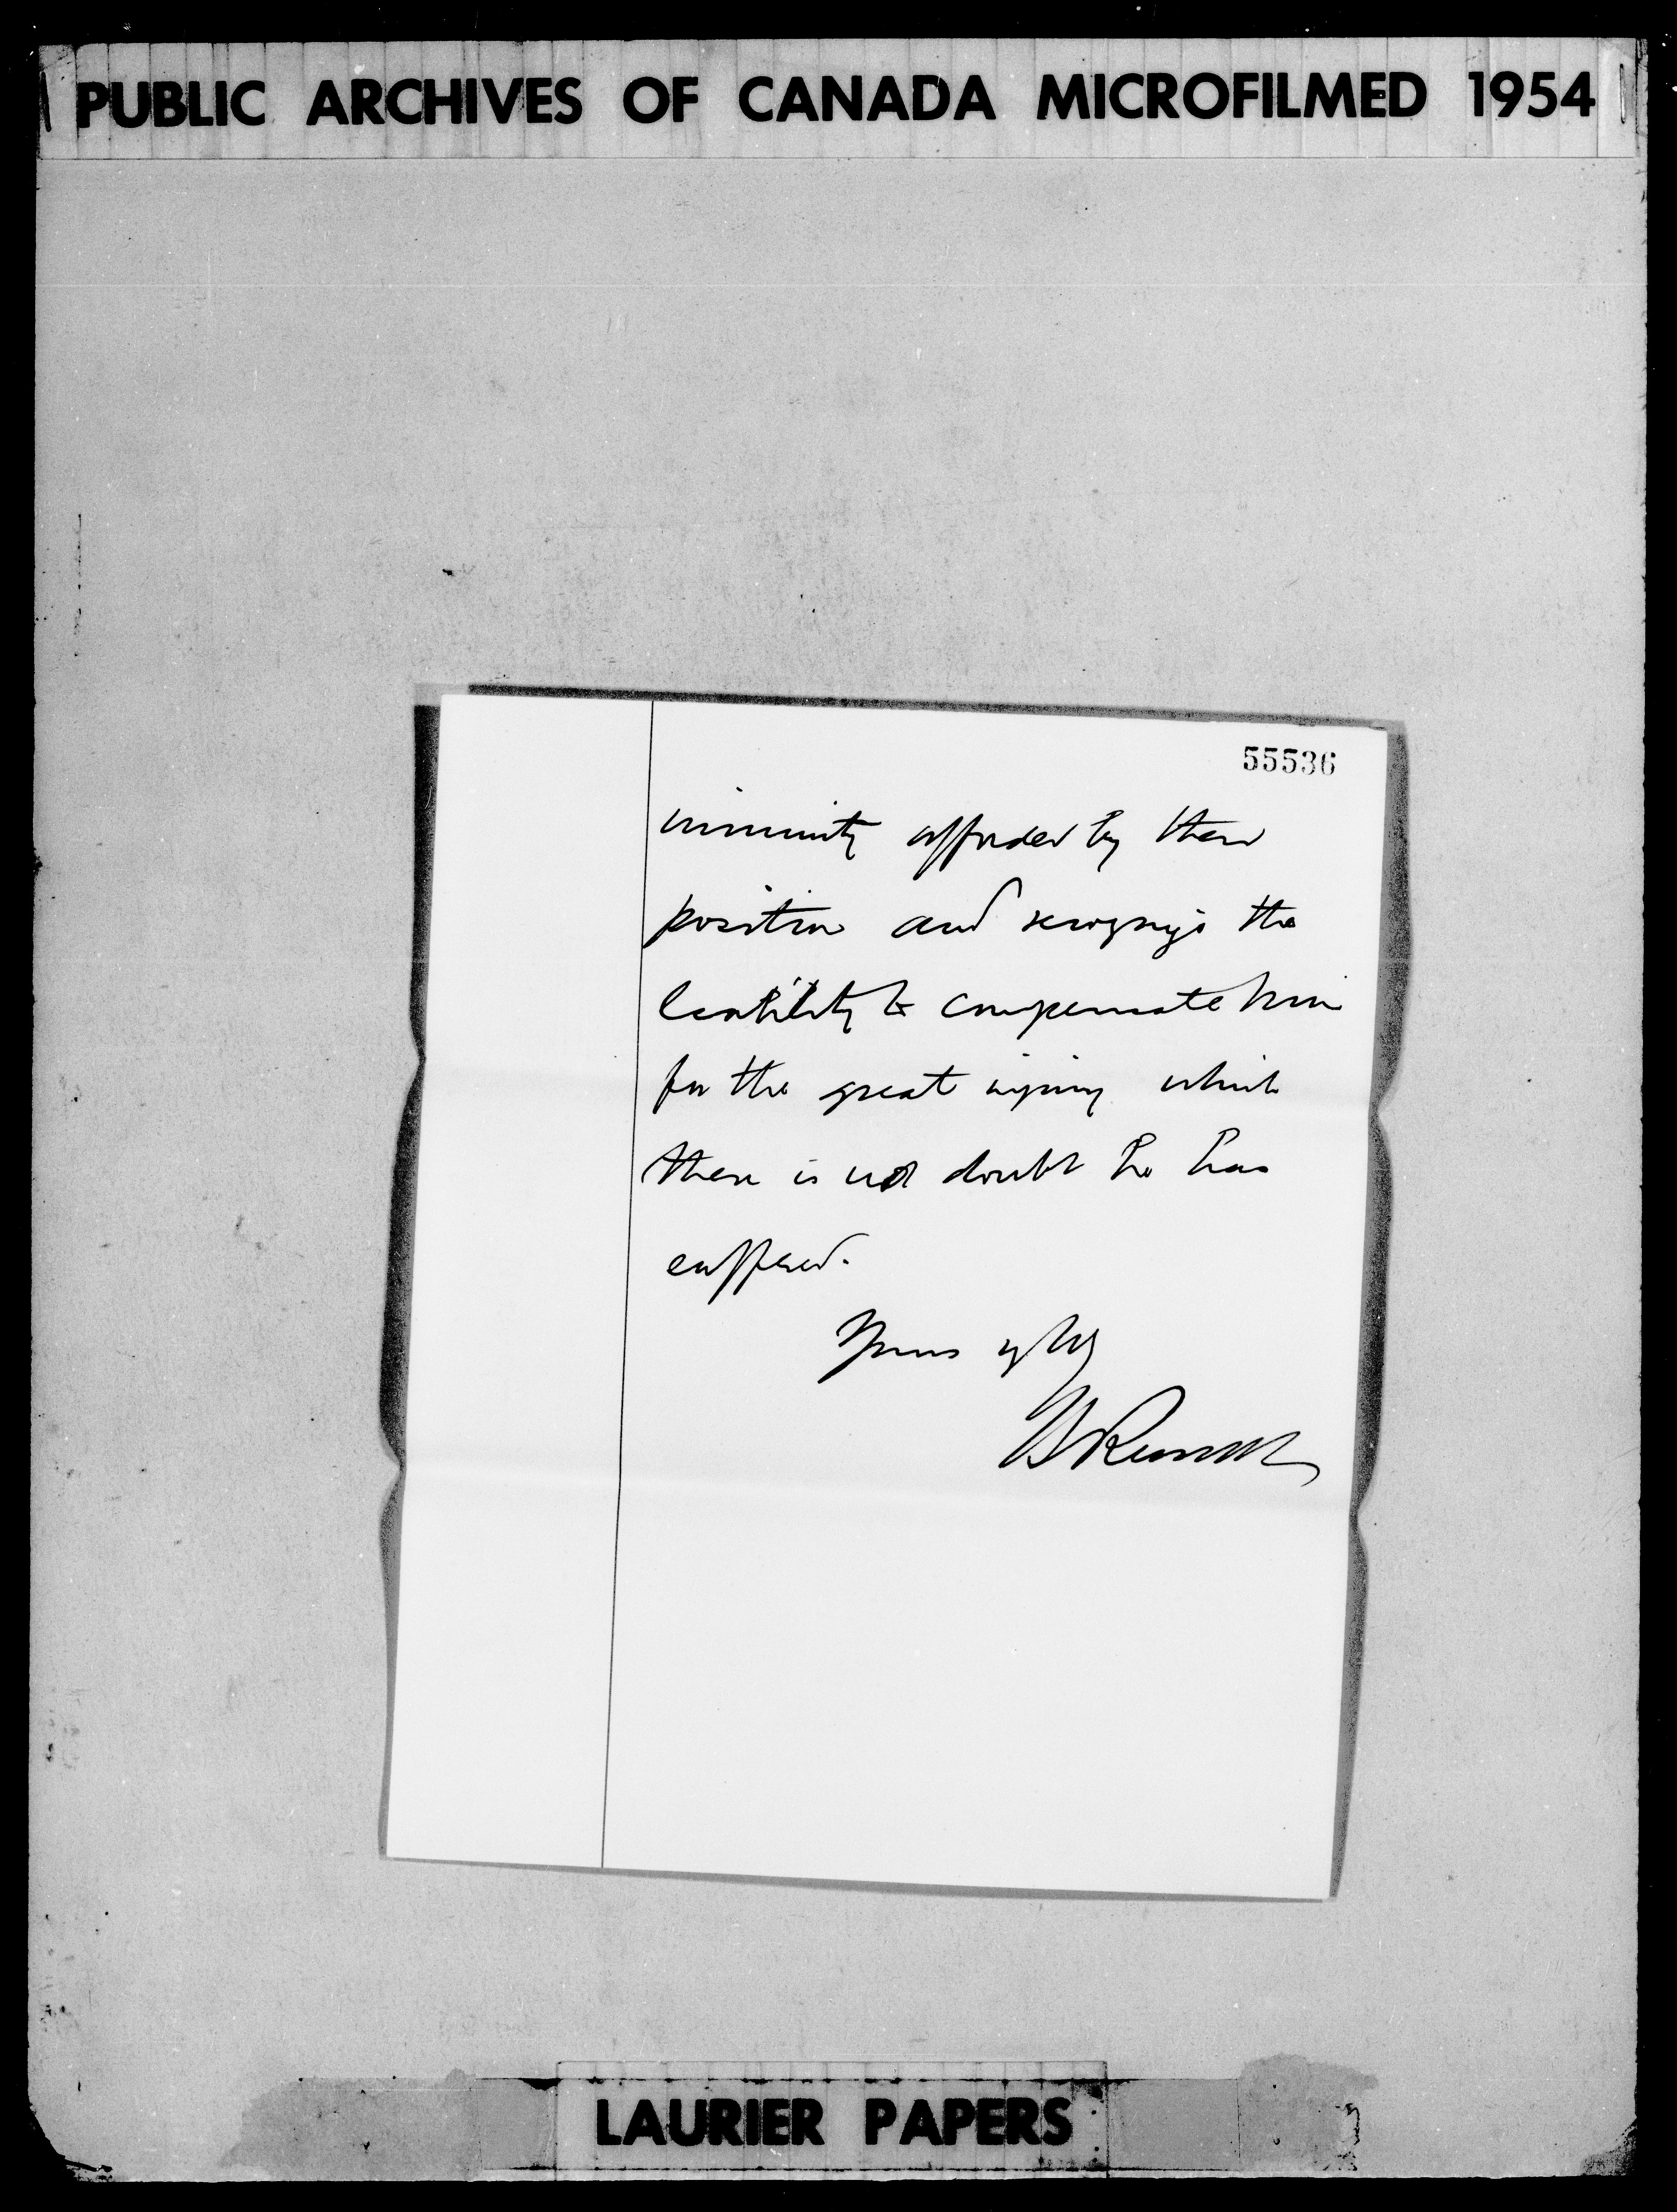 PUBLIC ARCHIVES OF CANADA MICROFILMED 1954
55536
immunity afforded by their
position and recognize the
liability to compensate him
for the great injury which
there is no doubt he has
suffered.
Yours truly
LAURIER PAPERS